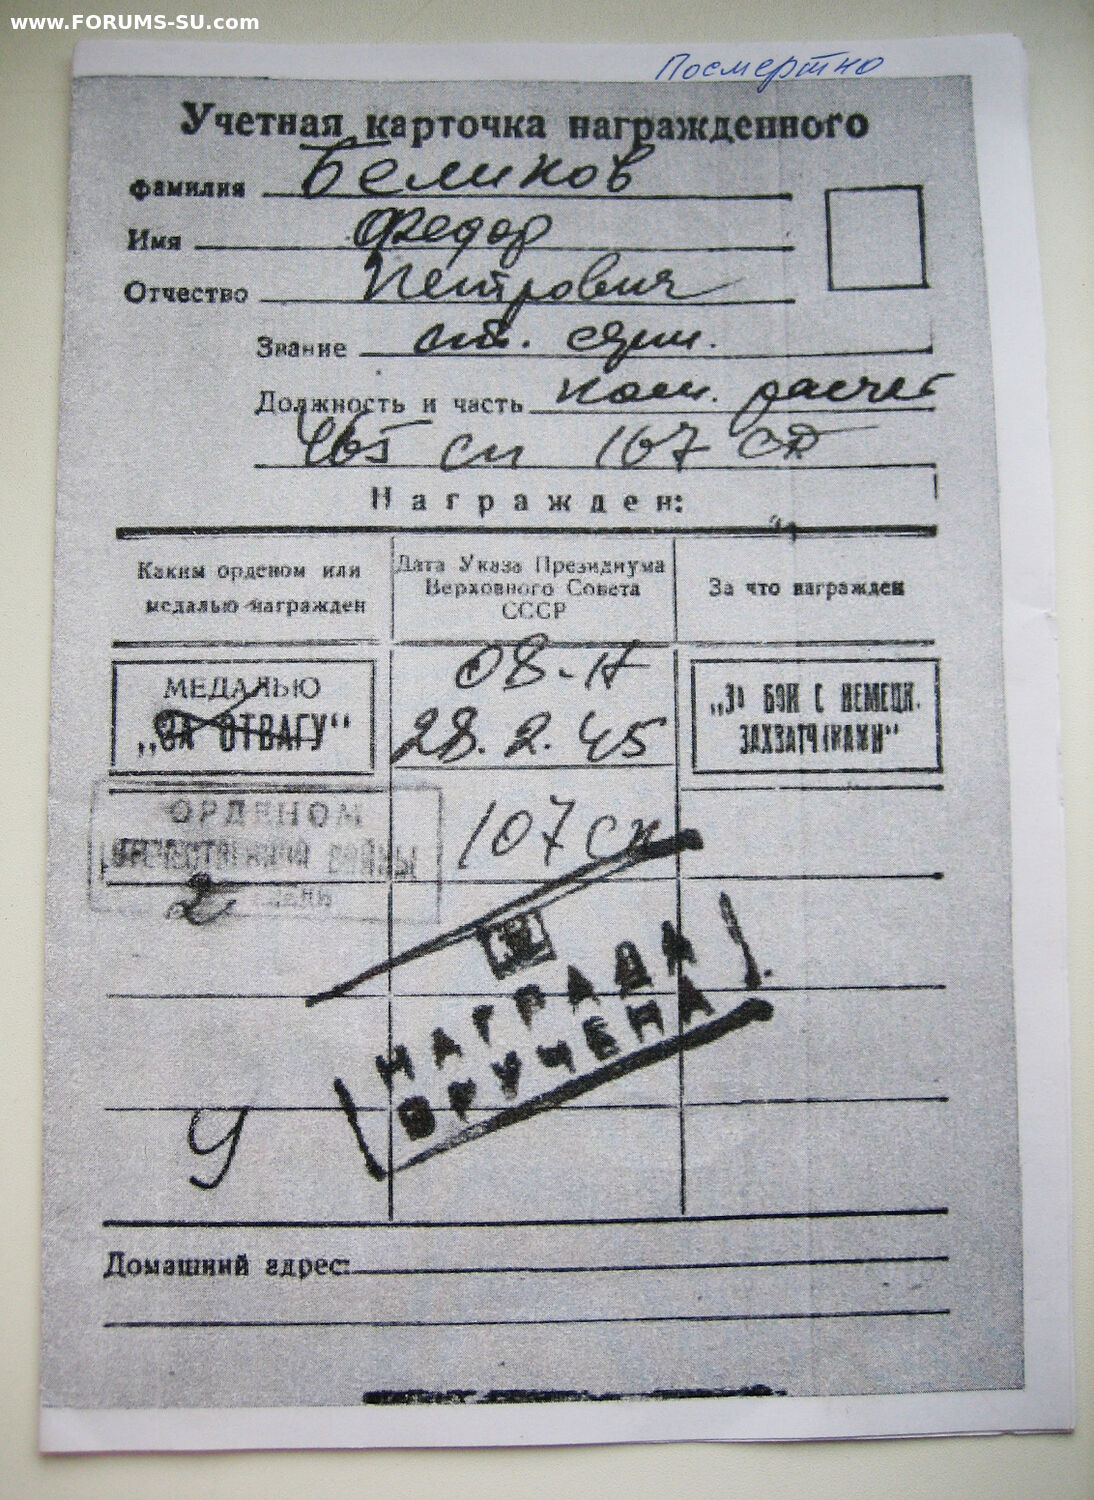 www.FORUMS-SU.com
Посмертно
Учетная карточка награжденного
Фамилия Беликов
Имя Федор
Отчество Петрович
Звание ст. серж.
Должность и часть ком. расчет
465 сп 167 сд
Награжден:
Каким орденом или медалью награжден
Дата Указа Президиума Верховного Совета СССР
За что награжден
МЕДАЛЬЮ
„ЗА ОТВАГУ“
08-н
28.2.45
„ЗА БОИ С НЕМЕЦК.
ЗАХВАТЧИКАМИ“
ОРДЕНОМ
ОТЕЧЕСТВЕННОЙ ВОЙНЫ
2
107 ск
НАГРАДА
ВРУЧЕНА
У
Домашний адрес: